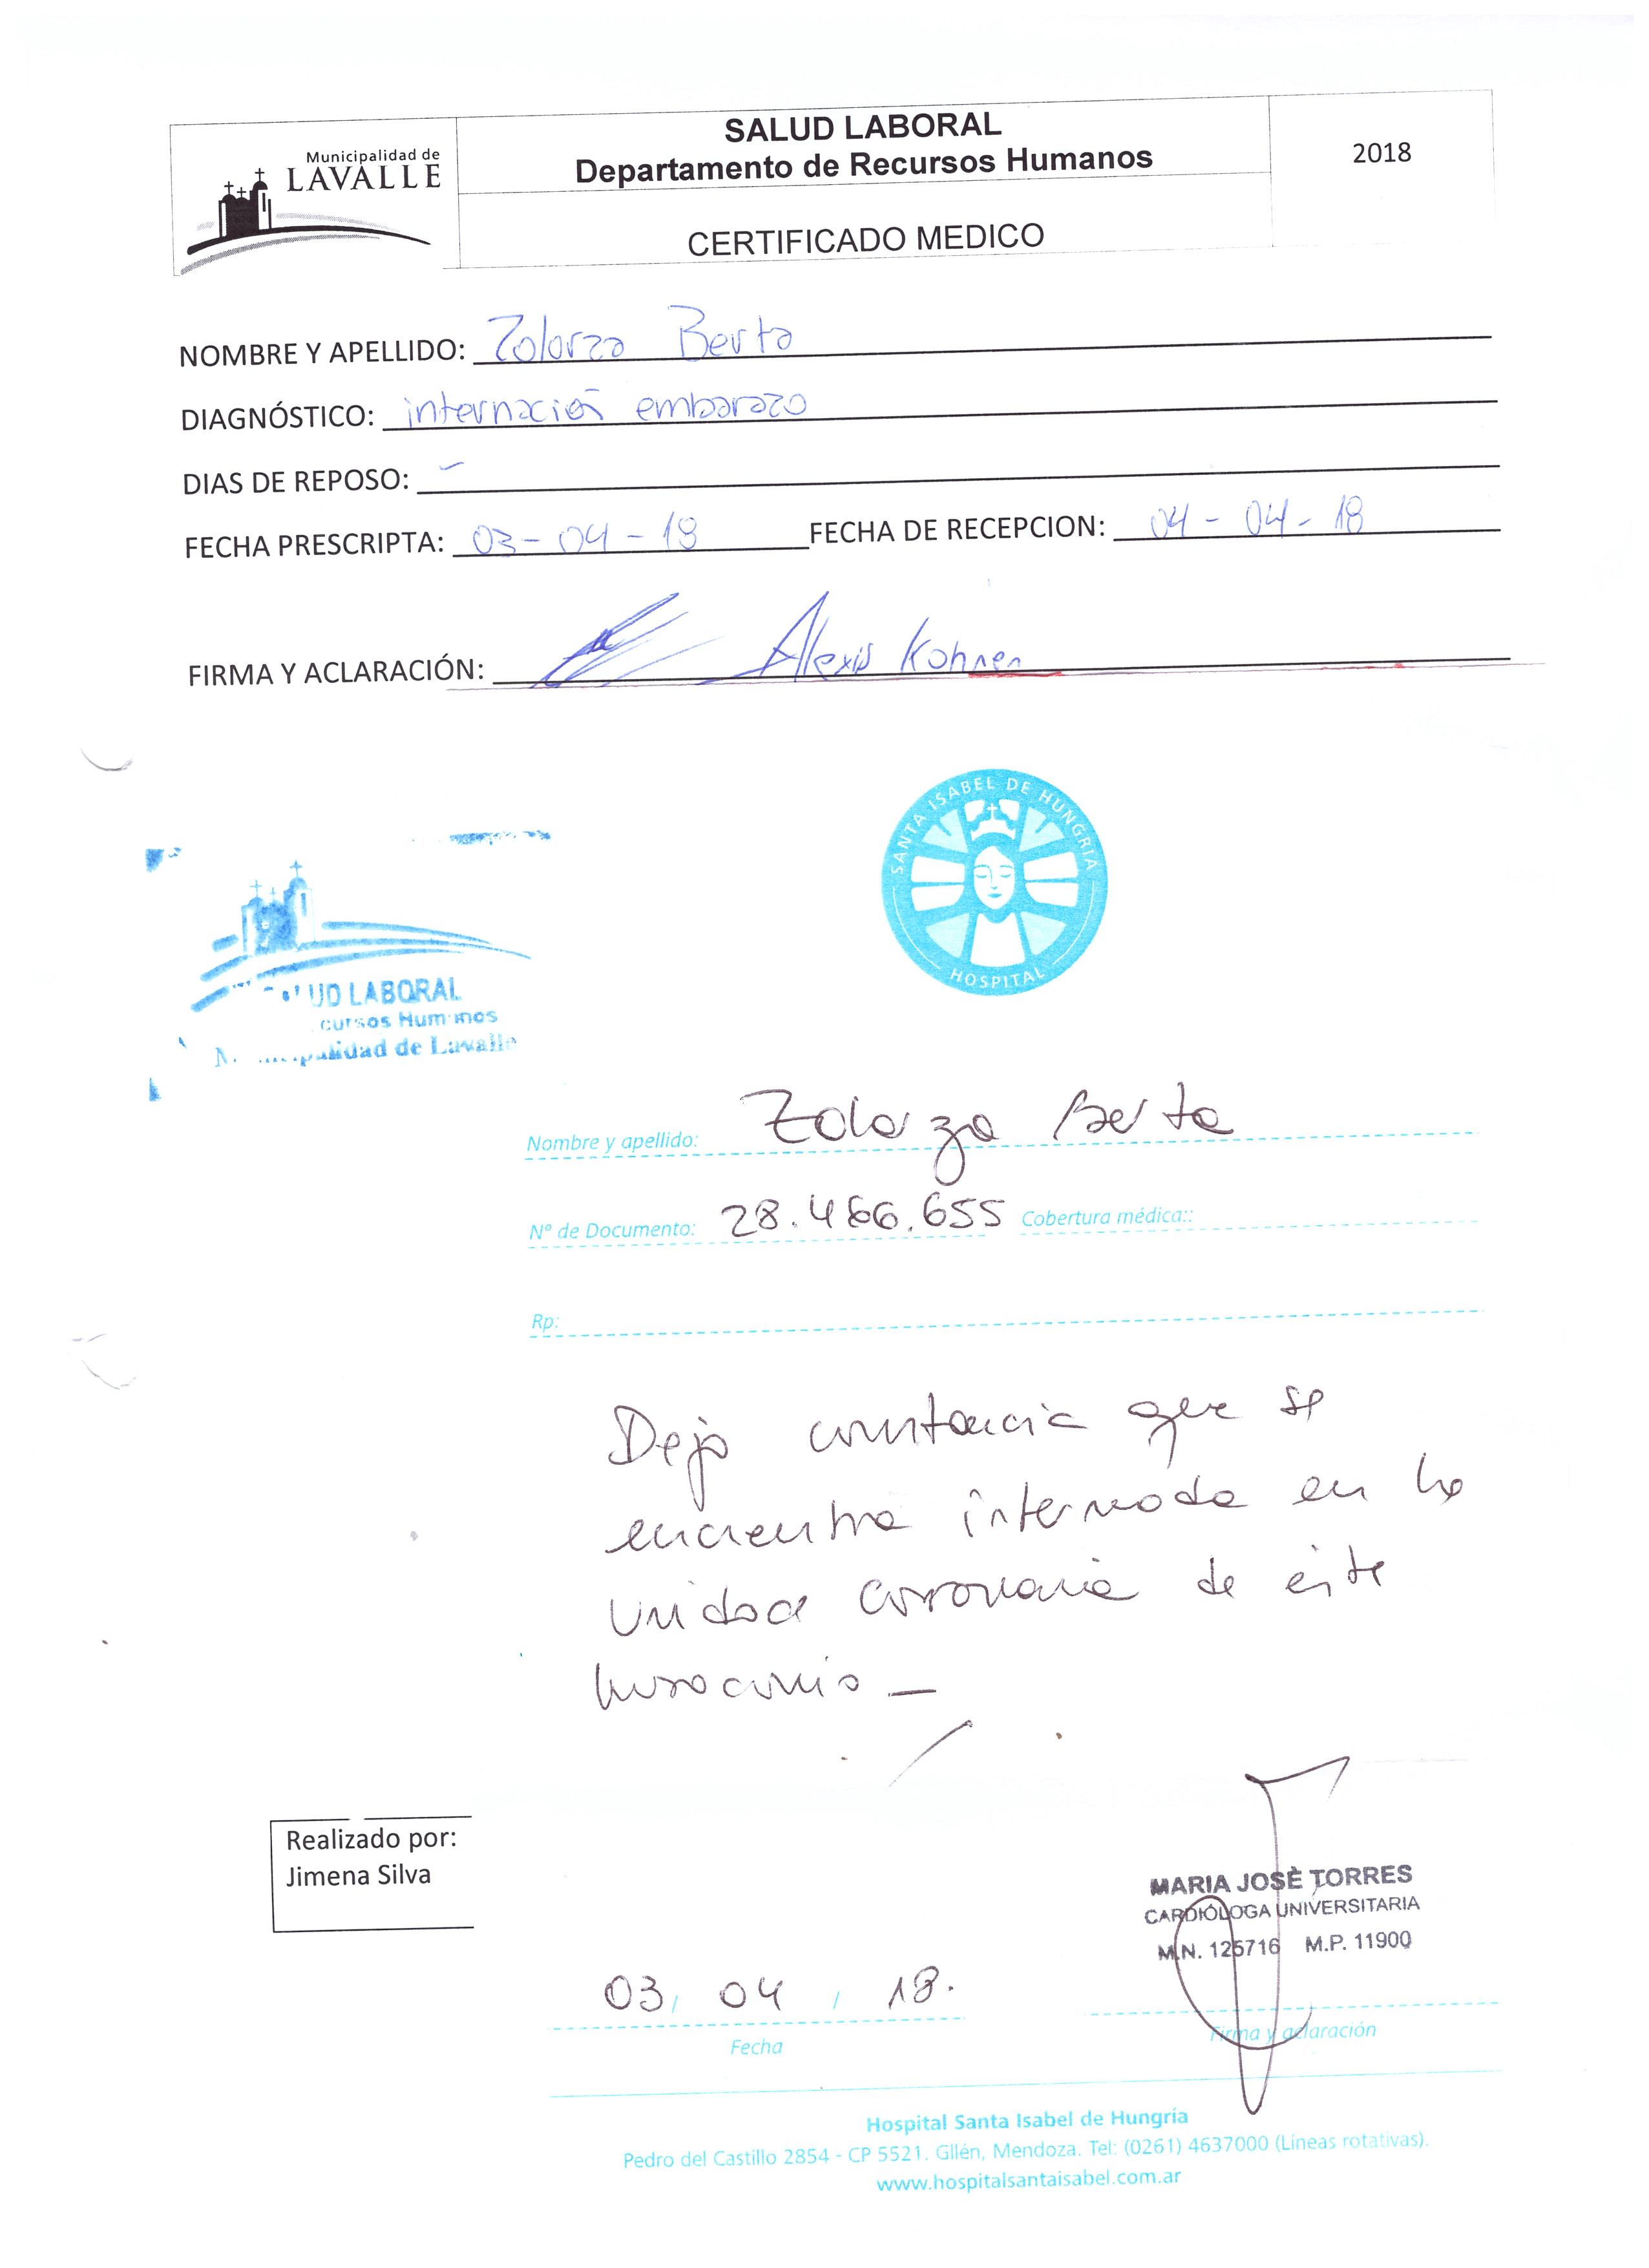 Municipalidad de
LAVALLE
SALUD LABORAL
Departamento de Recursos Humanos
2018
CERTIFICADO MEDICO
NOMBRE Y APELLIDO: Zolorza Berta
DIAGNÓSTICO: internación embarazo
DIAS DE REPOSO: -
FECHA PRESCRIPTA: 03-04-18 FECHA DE RECEPCION: 04-04-18
FIRMA Y ACLARACIÓN: Alexis Kohnen
SANTA ISABEL DE HUNGRIA
HOSPITAL
UD LABORAL
cursos Humanos
Municipalidad de Lavalle
Nombre y apellido: Zolorza Berta
Nº de Documento: 28.466.655 Cobertura médica::
Rp:
Dejo constancia que se
encuentra internada en la
unidad coronaria de este
nosocomio -
Realizado por:
Jimena Silva
MARIA JOSÈ TORRES
CARDIÓLOGA UNIVERSITARIA
M.N. 125716 M.P. 11900
03, 04, 18.
Fecha
Firma y aclaración
Hospital Santa Isabel de Hungria
Pedro del Castillo 2854 - CP 5521. Gllén, Mendoza. Tel: (0261) 4637000 (Líneas rotativas).
www.hospitalsantaisabel.com.ar